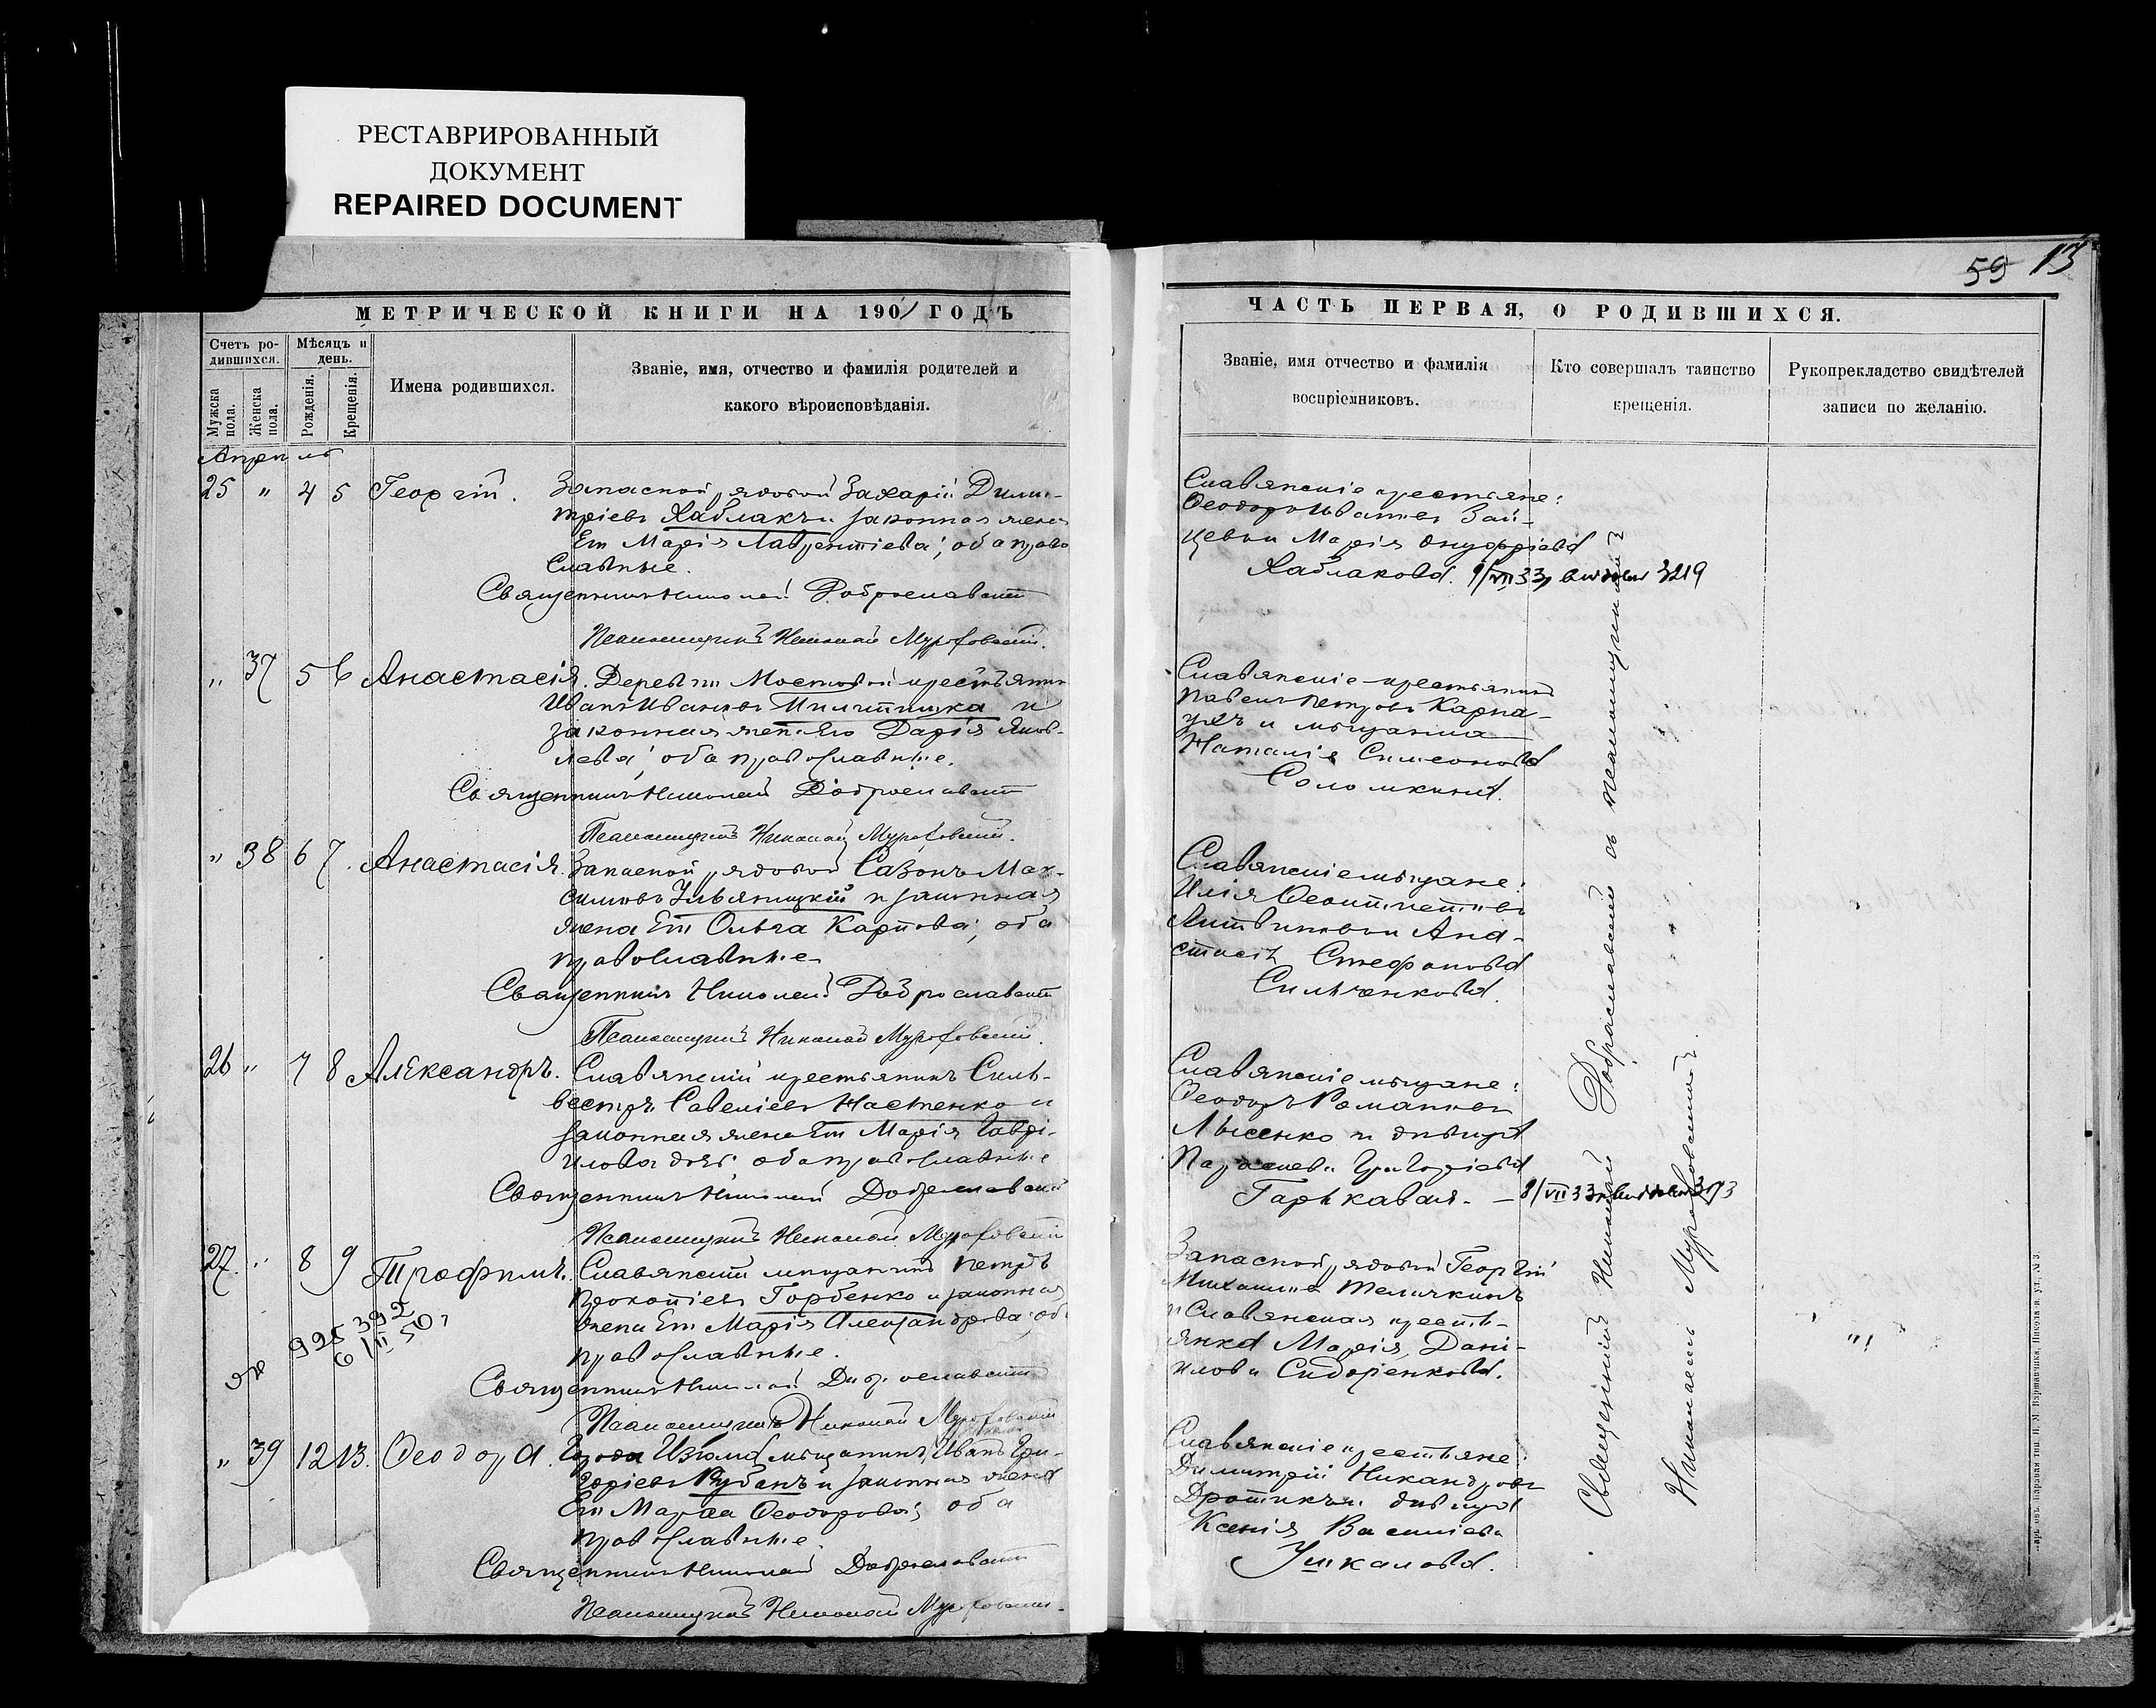 РЕСТАВРИРОВАННЫЙ
ДОКУМЕНТ
REPAIRED DOCUMENT
59 13
МЕТРИЧЕСКОЙ КНИГИ НА 1901 ГОДЪ
Счетъ ро-
дившихся.
Мѣсяцъ и
день.
Мужска
пола.
Женска
пола.
Рожденія.
Крещенія.
Имена родившихся.
Званіе, имя, отчество и фамилія родителей и
какого вѣроисповѣданія.
Апрель
25 " 4 5 Георгій. Запасной рядовой Захарій Дими-
тріевъ Каблакъ и законная жена
Его Марія Лаврентіева; оба право
славные.
Священникъ Николай Доброславскій
Псаломщикъ Николай
" 37 5 6 Анастасія. Деревни Мостовой крестьянинъ
Иванъ Ивановъ и
законная жена Его Дарія Яков-
лева; оба православные.
Священникъ Николай Доброславскій
Псаломщикъ Николай
" 38 6 7. Анастасія. Запасной рядовой Сазонъ Мак-
симовъ Ульяницкій и законная
жена Его Ольга Карпова; оба
православные
Священникъ Николай Доброславскій
Псаломщикъ Николай
26 " 7 8 Александръ. Славянскій крестьянинъ Силь-
вестръ Савеліевъ Настенко и
законная жена Его Марія Гаврі-
илова оба православные
Священникъ Николай Доброславскій
Псаломщикъ Николай
27. " 8 9 Трофимъ. Славянскій мѣщанинъ Петръ
Прокопіевъ Горбенко и законная
жена Его Марія Александрова; оба
православные.
925 392
6/III 50,
Священникъ Николай Доброславскій
Псаломщикъ Николай
" 39 12 13. Ѳеодора. Города Изюма мѣщанинъ Иванъ Гри-
горіевъ Кубанъ и законная жена
Его Марѳа Ѳеодорова; оба
православные.
Священникъ Николай Доброславскій
Псаломщикъ Николай
ЧАСТЬ ПЕРВАЯ, О РОДИВШИХСЯ.
Званіе, имя отчество и фамилія
воспріемниковъ.
Кто совершалъ таинство
крещенія.
Рукоприкладство свидѣтелей
записи по желанію.
Славянскіе крестьяне:
Ѳеодоръ Ивановъ Зай-
цевъ и Марія Онуфріева
Каблакова. 9/VII 33, 3219
Славянскіе крестьянинъ
Павелъ Петровъ Карпа-
и мѣщанка
Наталія Симеонова
Соломкина.
Славянскіе мѣщане:
Илія
Литвиновъ и Ана-
стасія Стефанова
Сильченкова.
Славянскіе мѣщане:
Ѳеодоръ Романовъ
Лысенко и дѣвица
Параскева Григоріева
Гарькавая. — 8/VII 33
Запасной рядовой Георгій
Михаиловъ Теличкинъ
и Славянская кресть-
янка Марія Дани-
илова Сидоренкова.
Славянскіе крестьяне:
Димитрій Никандровъ
Дротикъ и дѣвица
Ксенія Василіева
Ушкалова.
Священникъ Николай Доброславскій съ псаломщикомъ
Николаемъ